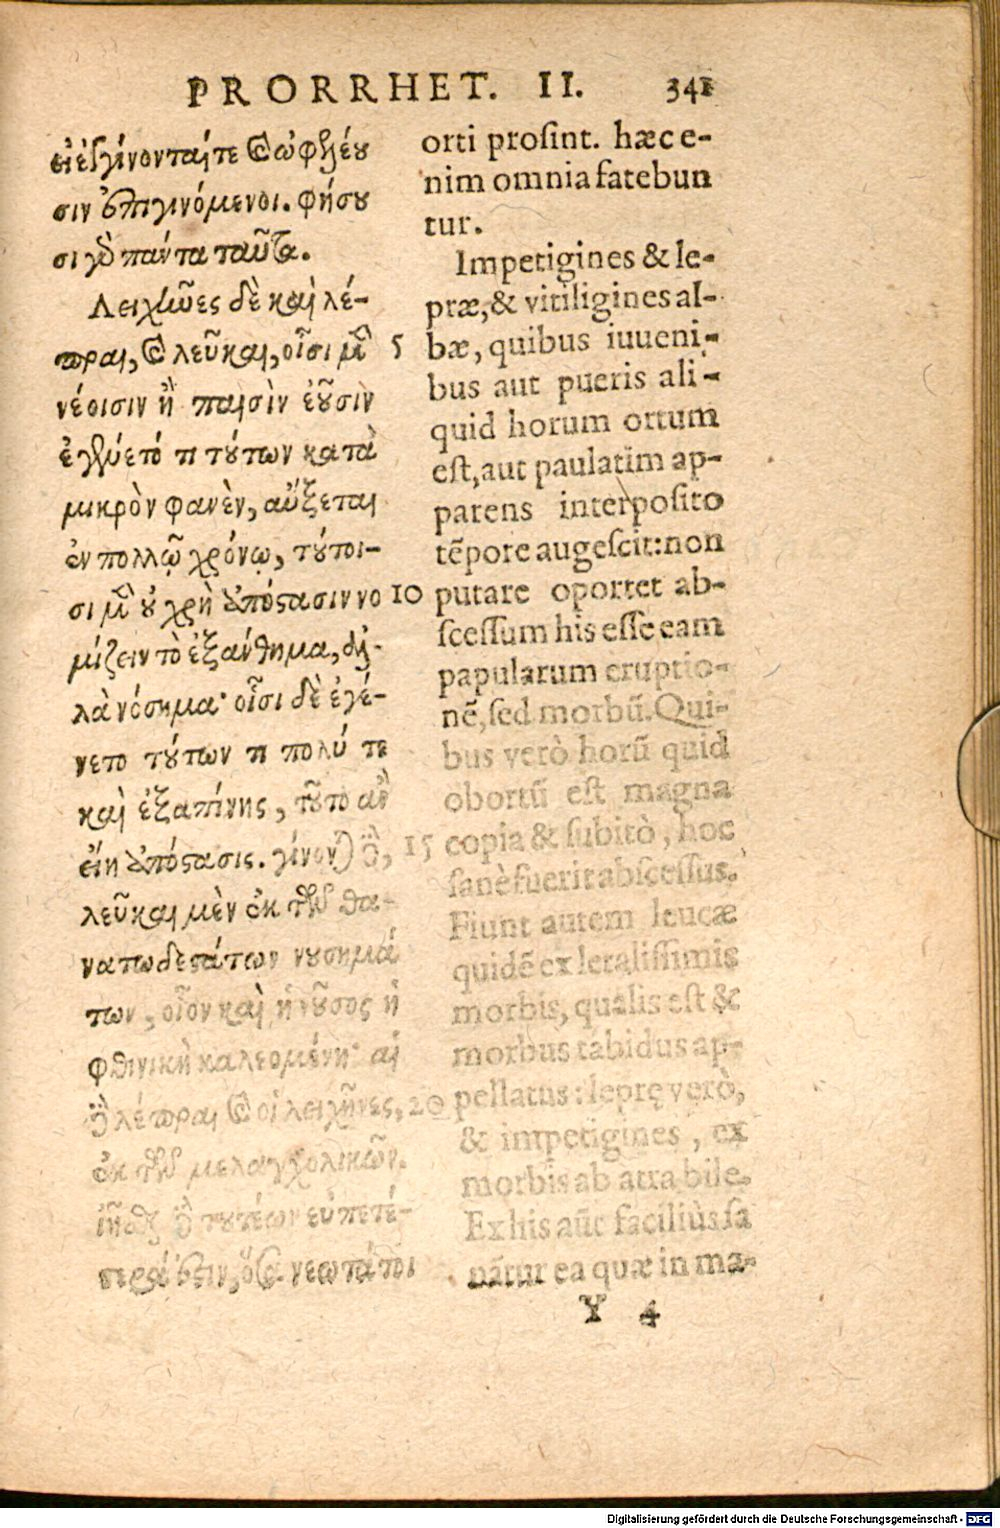 PRORRHET. II. 341
εἰ ἐγγίνονταί τε καὶ ὠφελέου
σιν ἐπιγινόμενοι. φήσου
σι γὸ πάντα ταῦτα.
Λειχῆνες δὲ καὶ λέ-
πραι, καὶ λεῦκαι, οἷσι μὲν 5
νέοισιν ἢ παισὶν ἐοῦσιν
ἐγένετό τι τούτων κατὰ
μικρὸν φανὲν, αὔξεται
ἐν πολλῷ χρόνῳ, τούτοι-
σι μὲν οὐ χρὴ ἀπόστασιν νο 10
μίζειν τὸ ἐξάνθημα, ἀλ-
λὰ νόσημα· οἷσι δὲ ἐγέ-
νετο τούτων τι πολύ τε
καὶ ἐξαπίνης, τοῦτο ἂν
εἴη ἀπόστασις. γίνονται δὲ, 15
λεῦκαι μὲν ἐκ τῶν θα-
νατωδεστάτων νουσημά
των, οἷον καὶ ἡ νοῦσος ἡ
φθινικὴ καλεομένη· αἱ
δὲ λέπραι καὶ οἱ λειχῆνες, 20
ἐκ τῶν μελαγχολικῶν.
ἰῆσθαι δὲ τουτέων εὐπετέ-
στερά ἐστιν, ὅσα νεωτάτοι
orti prosint. hæc e-
nim omnia fatebun
tur.
Impetigines & le-
præ, & vitiligines al-
bæ, quibus iuueni-
bus aut pueris ali-
quid horum ortum
est, aut paulatim ap-
parens interposito
tẽpore augescit: non
putare oportet ab-
scessum his esse eam
papularum eruptio-
nẽ, sed morbũ. Qui-
bus verò horũ quid
obortũ est magna
copia & subitò, hoc
sanè fuerit abscessus.
Fiunt autem leucæ
quidẽ ex letalissimis
morbis, qualis est &
morbus tabidus ap-
pellatus: leprę verò,
& impetigines, ex
morbis ab atra bile.
Ex his aũt faciliùs sa
nãtur ea quæ in ma-
Y 4
Digitalisierung gefördert durch die Deutsche Forschungsgemeinschaft - DFG